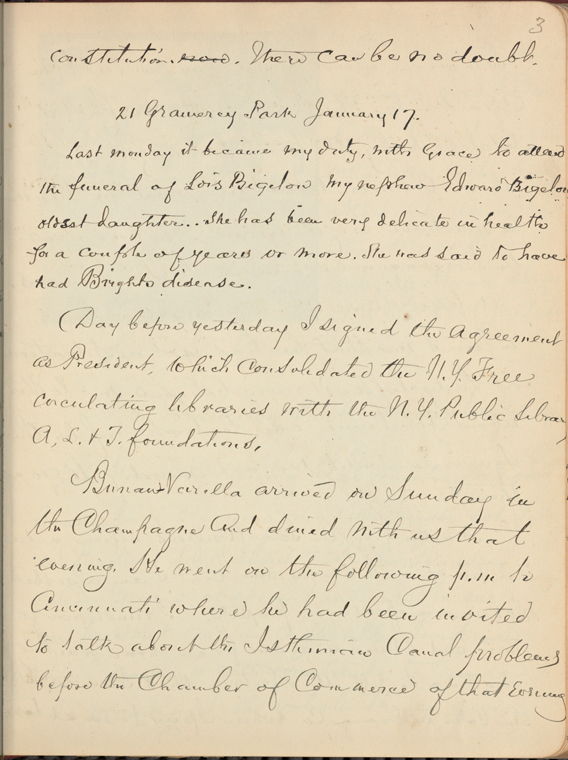 3
constitution. now. There can be no doubt.
21 Gramercy Park January 17.
Last monday it became my duty, with Grace to attend
the funeral of Lois Bigelow my nephew Edward Bigelow
oldest daughter.. She has been very delicate in health
for a couple of years or more. She was said to have
had Brights disease.
Day before yesterday I signed the Agreement
as President, which consolidated the N.Y. Free
circulating libraries with the N.Y. Public Library
A, L. & T. foundations.
Bunau-Varilla arrived on Sunday in
the Champagne and dined with us that
evening. He went on the following p.m to
Cincinnati where he had been invited
to talk about the Isthmian Canal problems
before the Chamber of Commerce of that Evening